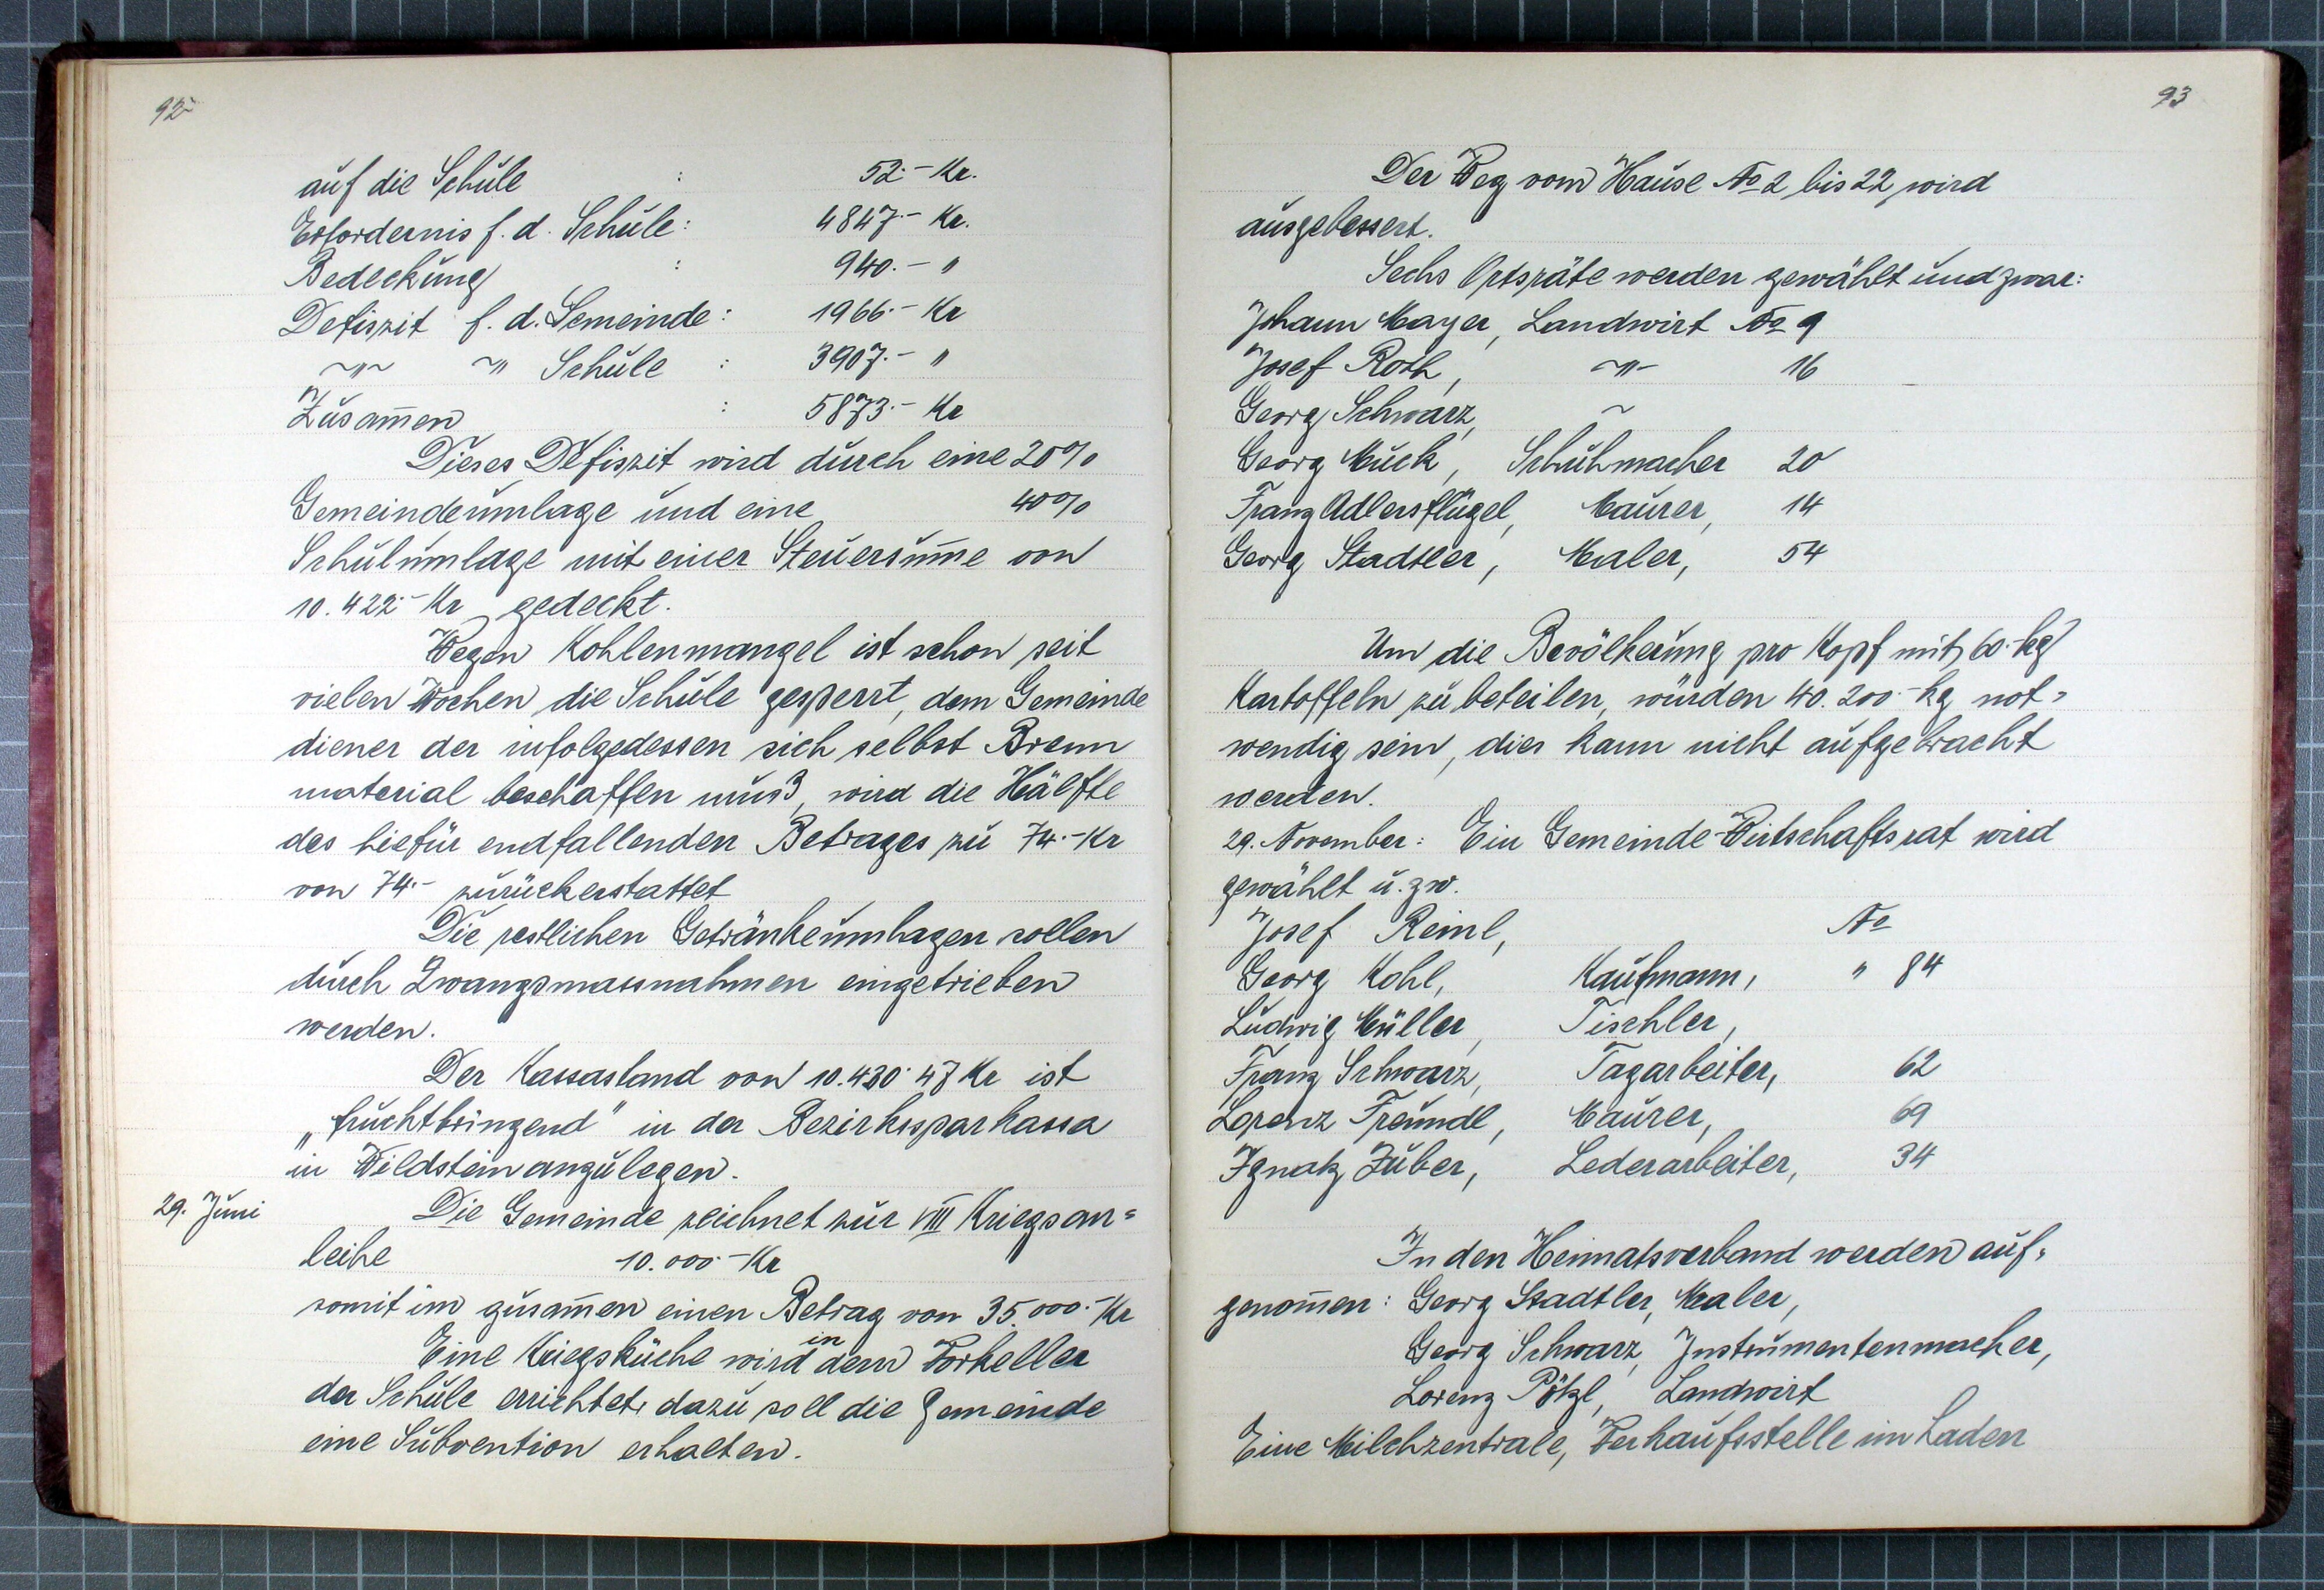 92
auf die Schule : 52.- Kr.
Erfordernis f. d. Schule: 4847.- Kr.
Bedeckung : 940.- "
Defiszit f. d. Gemeinde: 1966.- Kr
~"~ ~" Schule : 3907.- "
Zusam̄en : 5873.- Kr
Dieses Defiszit wird durch eine 20%
Gemeindeumlage und eine 40%
Schulumlage mit einer Steuersum̄e von
10.422.- Kr gedeckt.
Wegen Kohlenmangel ist schon seit
vielen Wochen die Schule gesperrt, dem Gemeinde
diener der infolgedessen sich selbst Brenn
material beschaffen muß, wird die Hälfte
des hiefür endfallenden Betrages zu 74.- Kr
von 74.- zurückerstattet
Die restlichen Getränkeumlagen sollen
durch Zwangsmassnahmen eingetrieben
werden.
Der Kassastand von 10.430.47 Kr ist
„fruchtbringend" in der Bezirkssparkassa
in Wildstein anzulegen.
29. Juni Die Gemeinde zeichnet zur VIII Kriegsan=
leihe 10.000.- Kr
somit im zusam̄en einen Betrag von 35.000.- Kr
Eine Kriegsküche wird in dem Vorkeller
der Schule errichtet, dazu soll die Gemeinde
eine Subvention erhalten.
93
Der Weg vom Hause No 2 bis 22 wird
ausgebessert.
Sechs Ortsräte werden gewählt und zwar:
Johann Mayer, Landwirt No 9
Josef Roth, ~"~ 16
Georg Schwarz, ~
Georg Muck, Schuhmacher 20
Franz Adlersflügel, Maurer, 14
Georg Stadtler, Maler, 54
Um die Bevölkerung pro Kopf mit 60.- kg
Kartoffeln zu beteilen, würden 40.200.- kg not=
wendig sein, dies kann nicht aufgebracht
werden.
29. November: Ein Gemeinde-Wirtschaftsrat wird
gewählt u. zw.
Josef Reinl, No
Georg Kohl, Kaufmann, " 84
Ludwig Müller, Tischler,
Franz Schwarz, Tagarbeiter, 62
Lorenz Freundl, Maurer, 69
Ignatz Zuber, Lederarbeiter, 34
In den Heimatsverband werden auf=
genom̄en: Georg Stadtler, Maler,
Georg Schwarz, Instrumentenmacher,
Lorenz Pötzl, Landwirt
Eine Milchzentrale, Verkaufsstelle im Laden